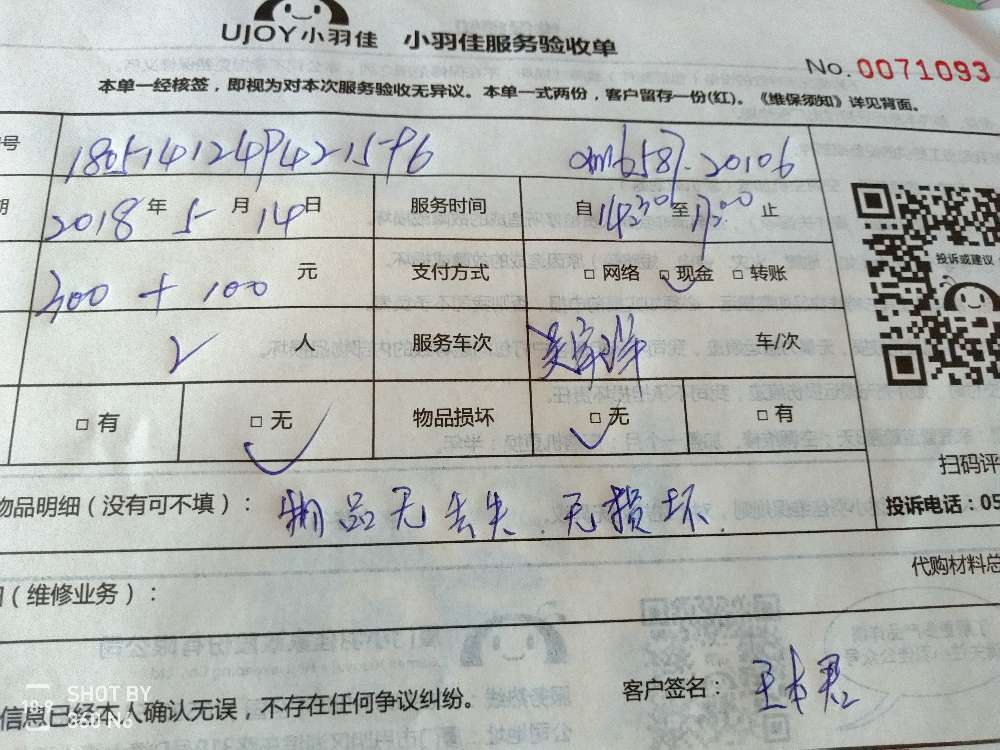 UJOY小羽佳 小羽佳服务验收单
No. 0071093
本单一经核签，即视为对本次服务验收无异议。本单一式两份，客户留存一份(红)。《维保须知》详见背面。
号
期 2018年5月14日 服务时间 自14:30至17:00止
300+100元 支付方式 □网络 □现金 □转账
2人 服务车次 车/次
□有 □无 物品损坏 □无 □有
投诉或建议
扫码评
投诉电话：05
物品明细（没有可不填）： 物品无丢失.无损坏.
代购材料总
（维修业务）：
信息已经本人确认无误，不存在任何争议纠纷。
客户签名：
SHOT BY
360 N6